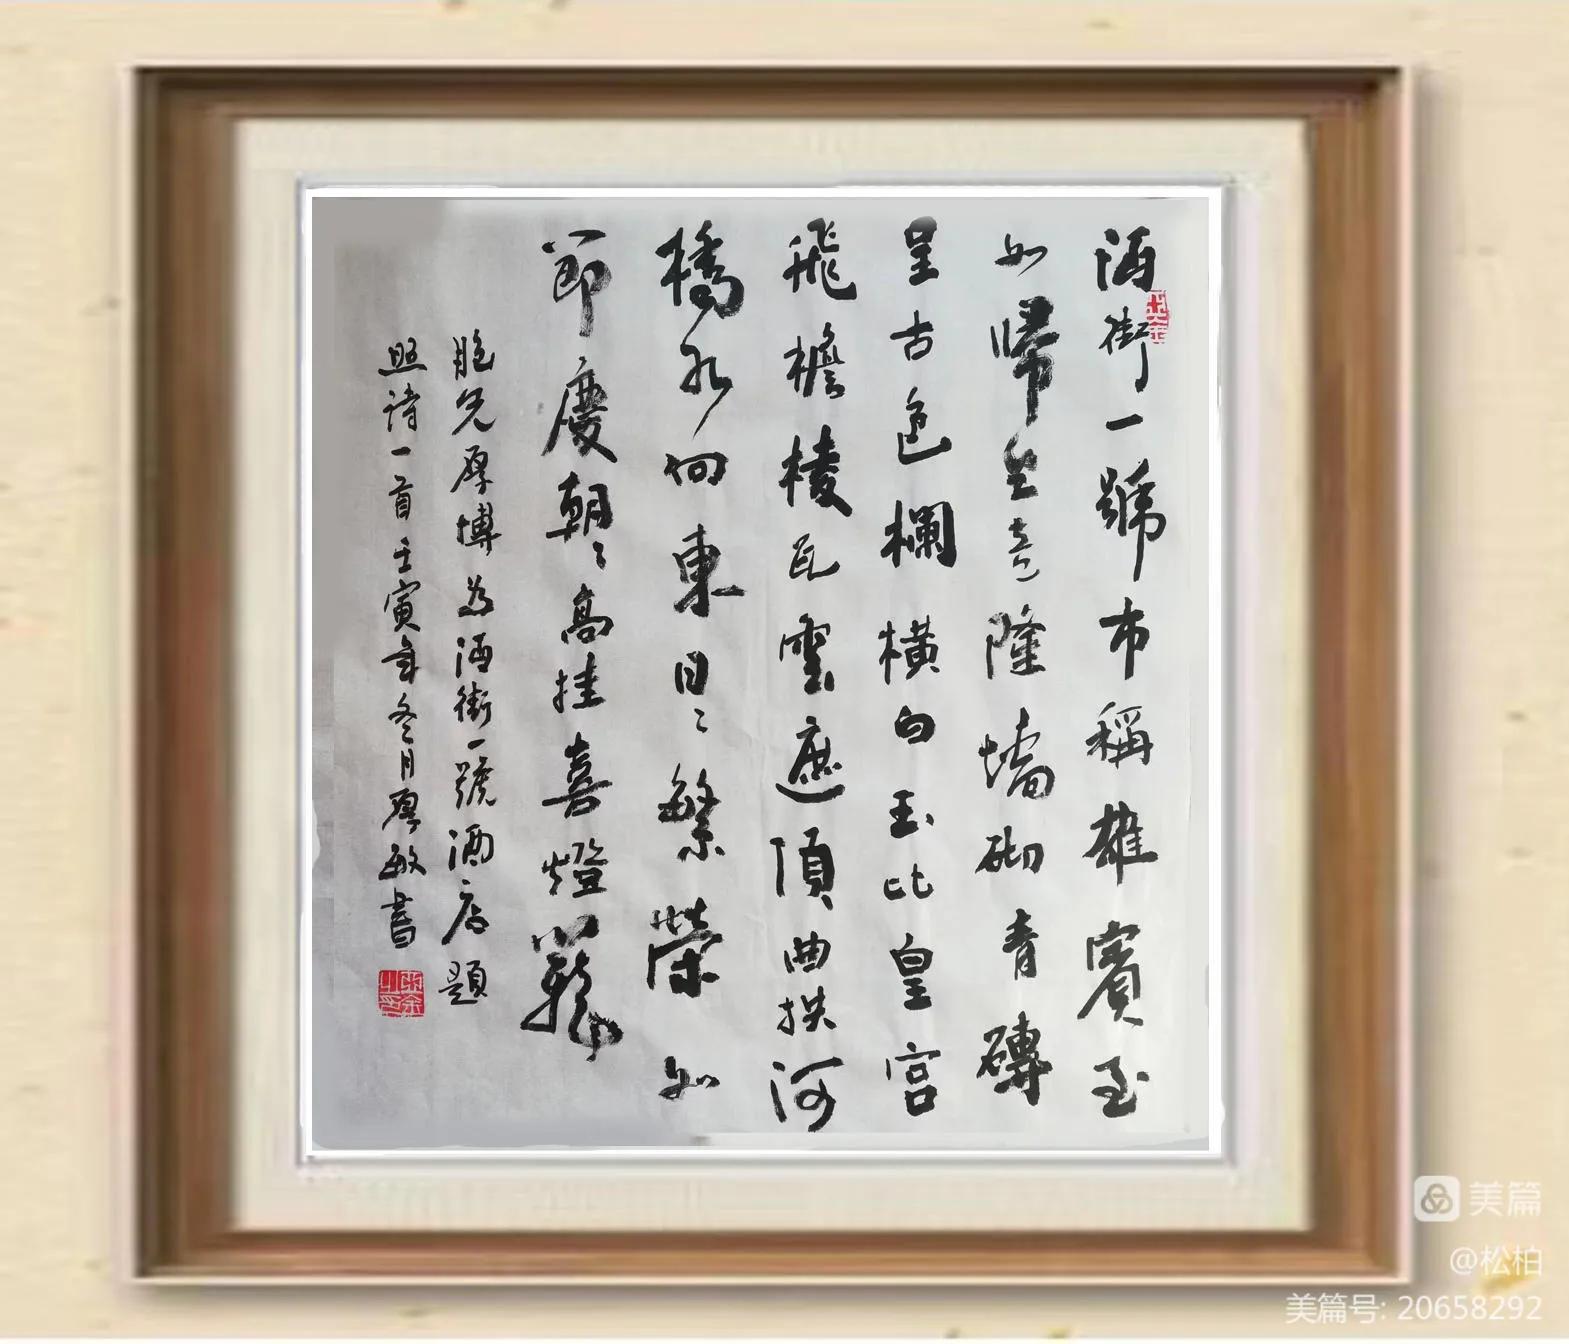 酒街一號市稱雄賓至
如歸生意隆墙砌青磚
呈古色欄橫白玉比皇宮
飛檐棱瓦雲遮頂曲拱河
橋水向東日〻繁榮如
節慶朝〻高挂喜燈籠
胞兄厚博為酒街一號酒店題
照诗一首壬寅年冬月厚敏書
美篇
@松柏
美篇号: 20658292